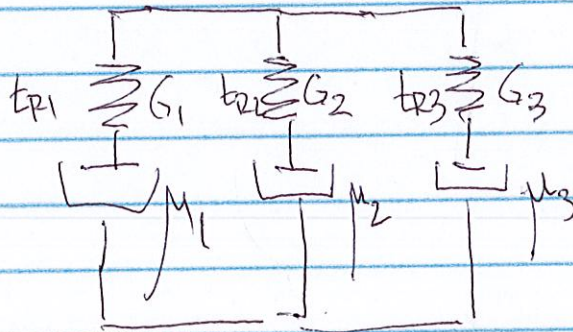 tR1 G1 tR2 G2 tR3 G3
μ1 μ2 μ3